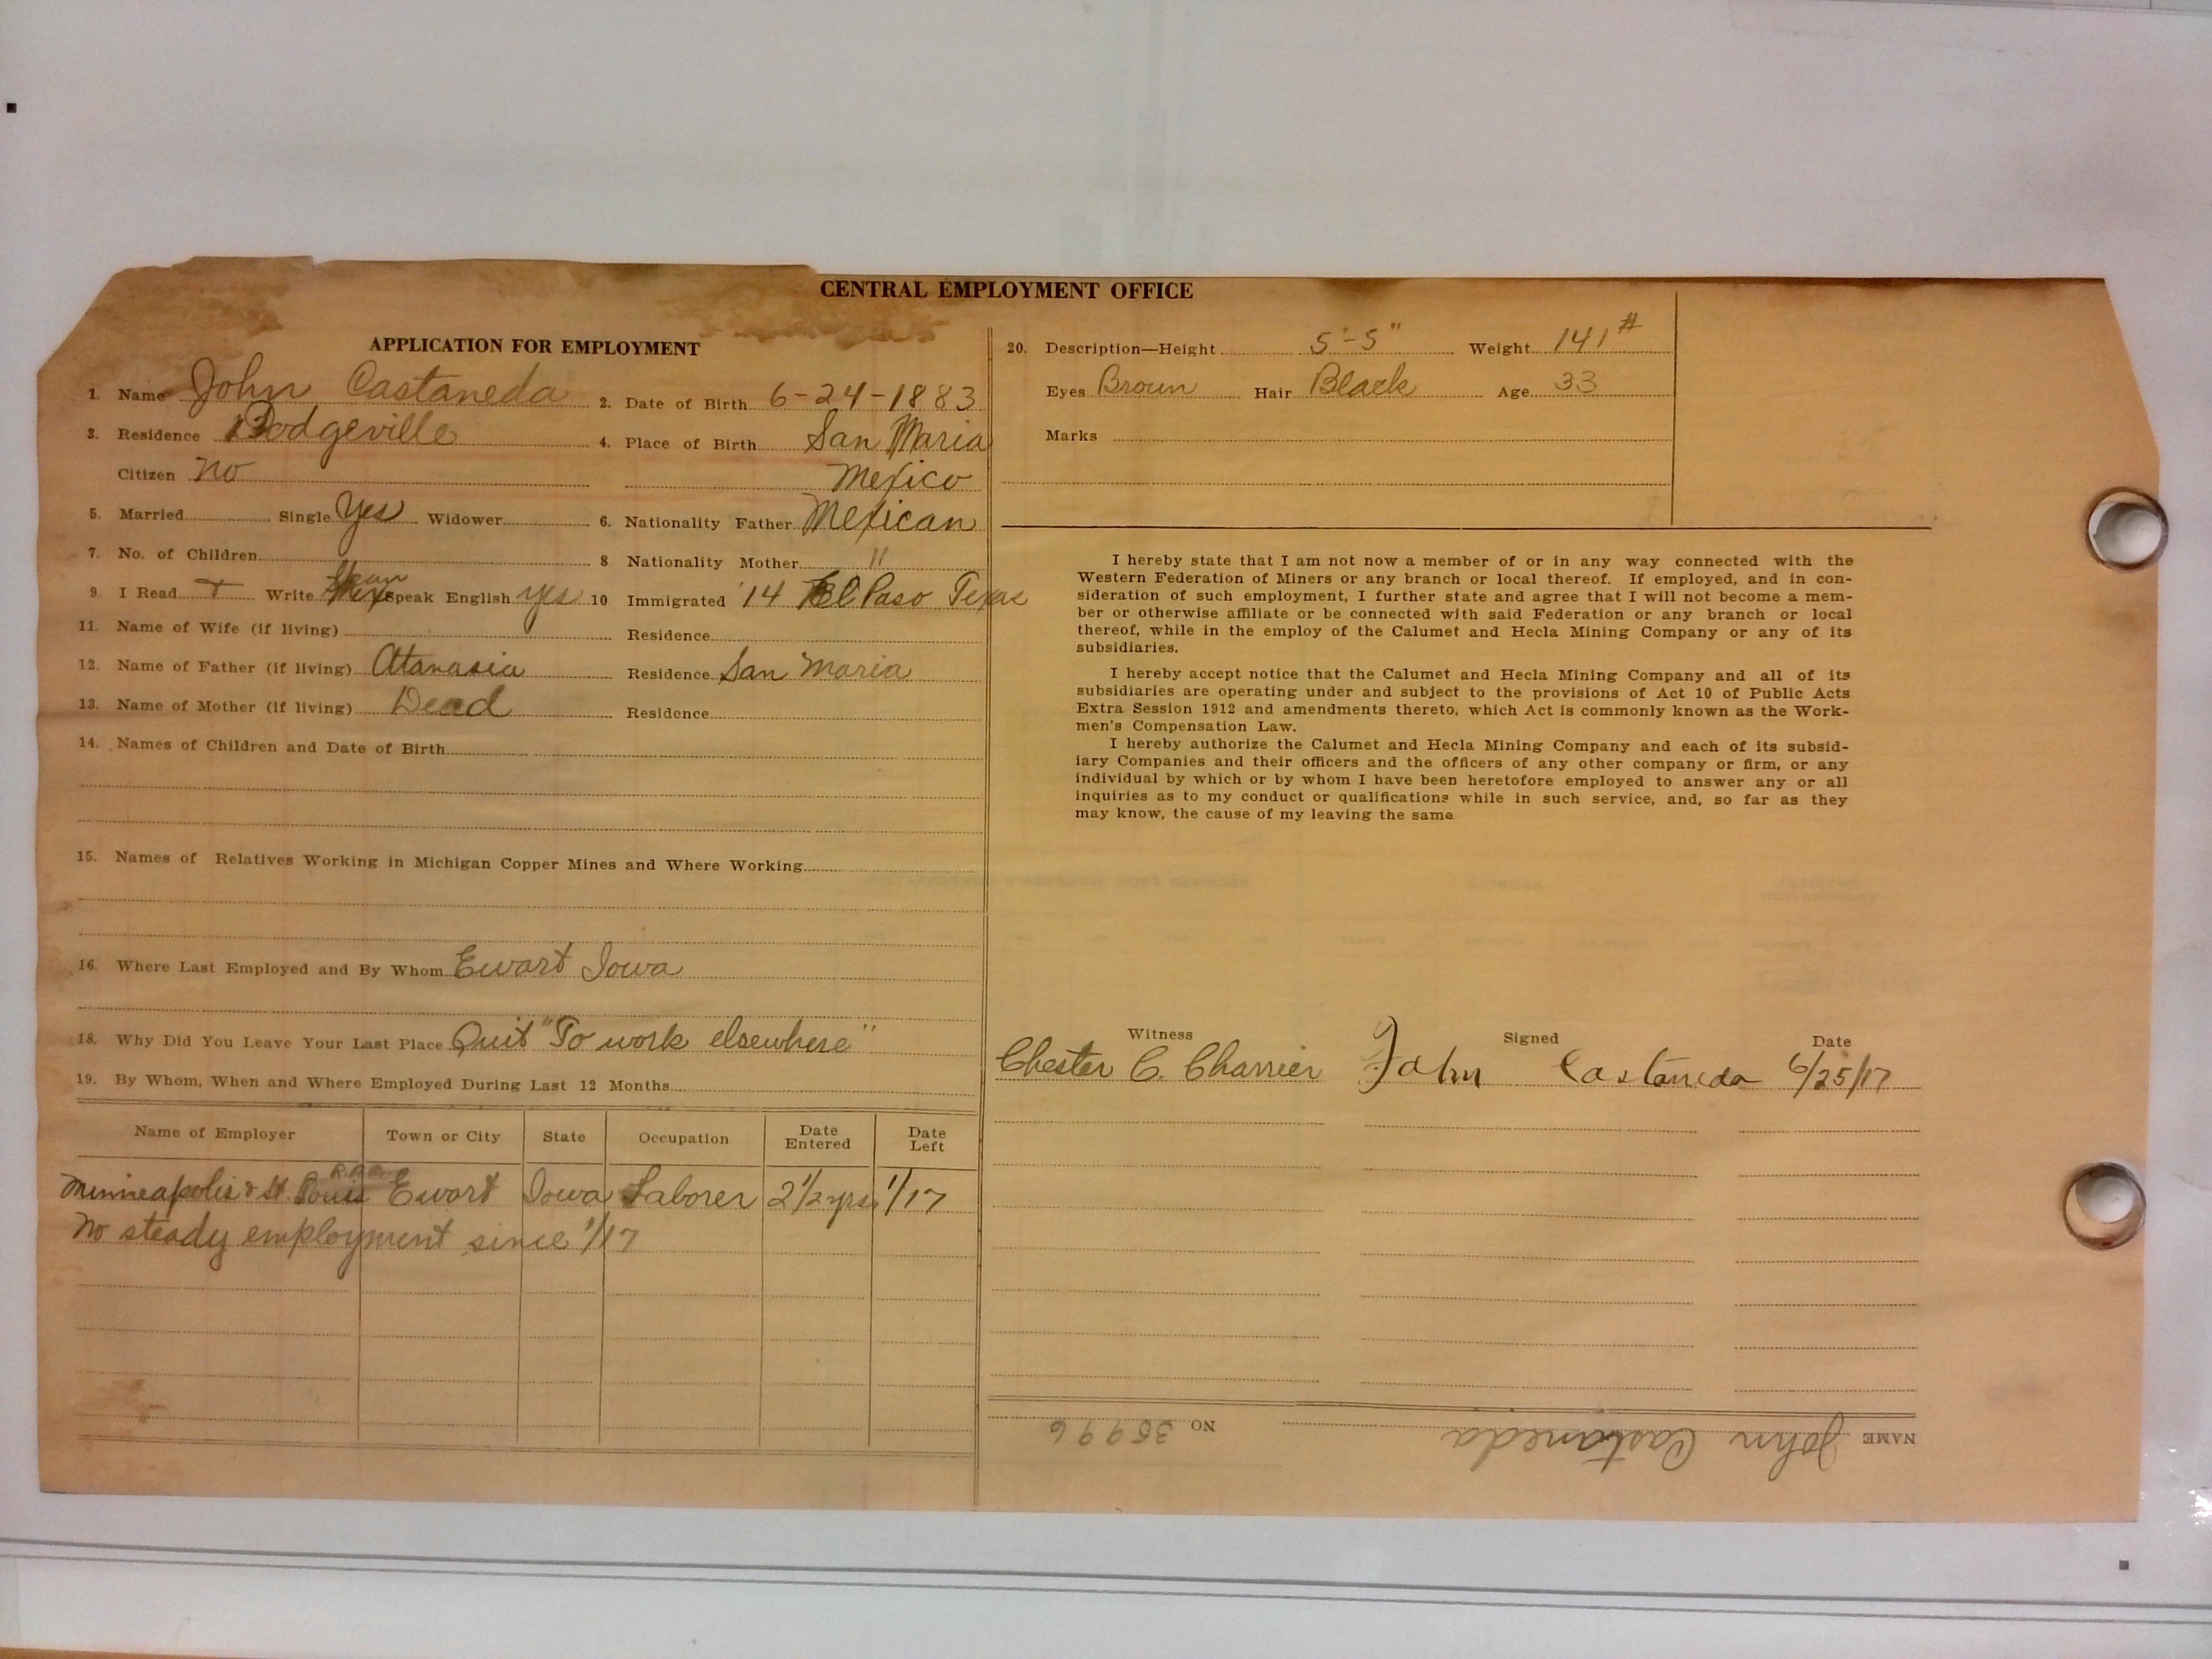 CENTRAL EMPLOYMENT OFFICE
APPLICATION FOR EMPLOYMENT
1. Name John Castaneda 2. Date of Birth 6-24-1883
3. Residence Dodgeville 4. Place of Birth San Maria
Citizen No Mexico
5. Married Single Yes Widower 6. Nationality Father Mexican
7. No. of Children 8 Nationality Mother "
9. I Read + Write Speak English yes 10 Immigrated '14 El Paso Texas
11. Name of Wife (if living) Residence
12. Name of Father (if living) Atanasia Residence San Maria
13. Name of Mother (if living) Dead Residence
14. Names of Children and Date of Birth
15. Names of Relatives Working in Michigan Copper Mines and Where Working
16. Where Last Employed and By Whom Ewart Iowa
18. Why Did You Leave Your Last Place Quit "To work elsewhere"
19. By Whom, When and Where Employed During Last 12 Months
Name of Employer Town or City State Occupation Date Entered Date Left
Minneapolis & St. Louis Ewart Iowa Laborer 2 1/2 yrs. 1/17
No steady employment since 1/17
20. Description—Height 5'-5" Weight 141#
Eyes Brown Hair Black Age 33
Marks
I hereby state that I am not now a member of or in any way connected with the
Western Federation of Miners or any branch or local thereof. If employed, and in con-
sideration of such employment, I further state and agree that I will not become a mem-
ber or otherwise affiliate or be connected with said Federation or any branch or local
thereof, while in the employ of the Calumet and Hecla Mining Company or any of its
subsidiaries.
I hereby accept notice that the Calumet and Hecla Mining Company and all of its
subsidiaries are operating under and subject to the provisions of Act 10 of Public Acts
Extra Session 1912 and amendments thereto, which Act is commonly known as the Work-
men's Compensation Law.
I hereby authorize the Calumet and Hecla Mining Company and each of its subsid-
iary Companies and their officers and the officers of any other company or firm, or any
individual by which or by whom I have been heretofore employed to answer any or all
inquiries as to my conduct or qualifications while in such service, and, so far as they
may know, the cause of my leaving the same
Witness Signed Date
Chester C. Charrier John Castaneda 6/25/17
NAME John Castaneda NO 35996